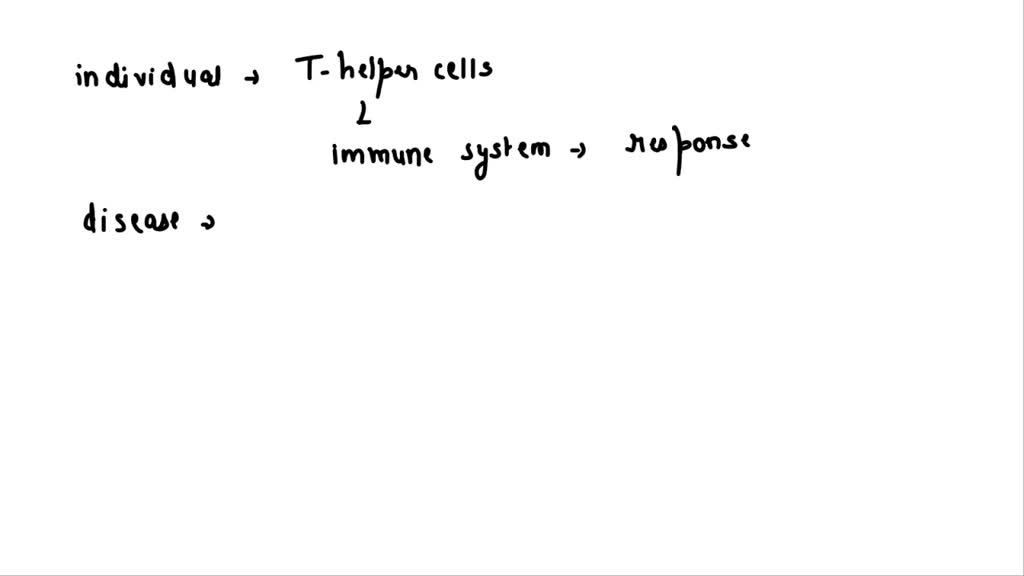 individual → T-helper cells
↳
immune system → response
disease →